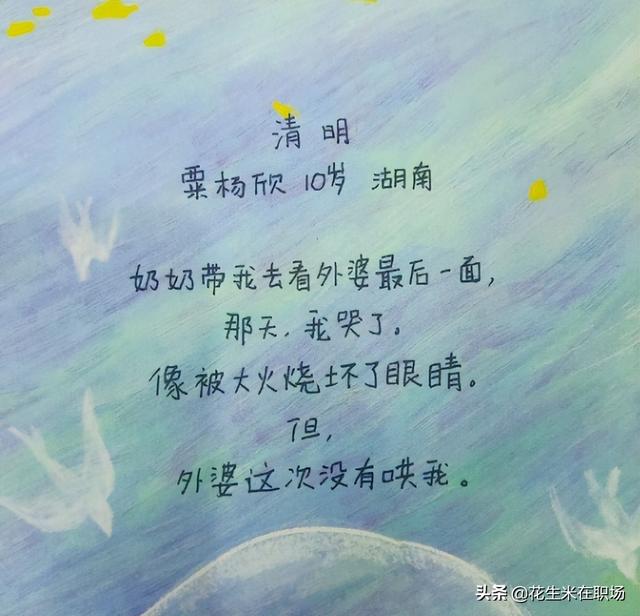 清明
粟杨欣 10岁 湖南
奶奶带我去看外婆最后一面，
那天，我哭了。
像被大火烧坏了眼睛。
但，
外婆这次没有哄我。
头条 @花生米在职场